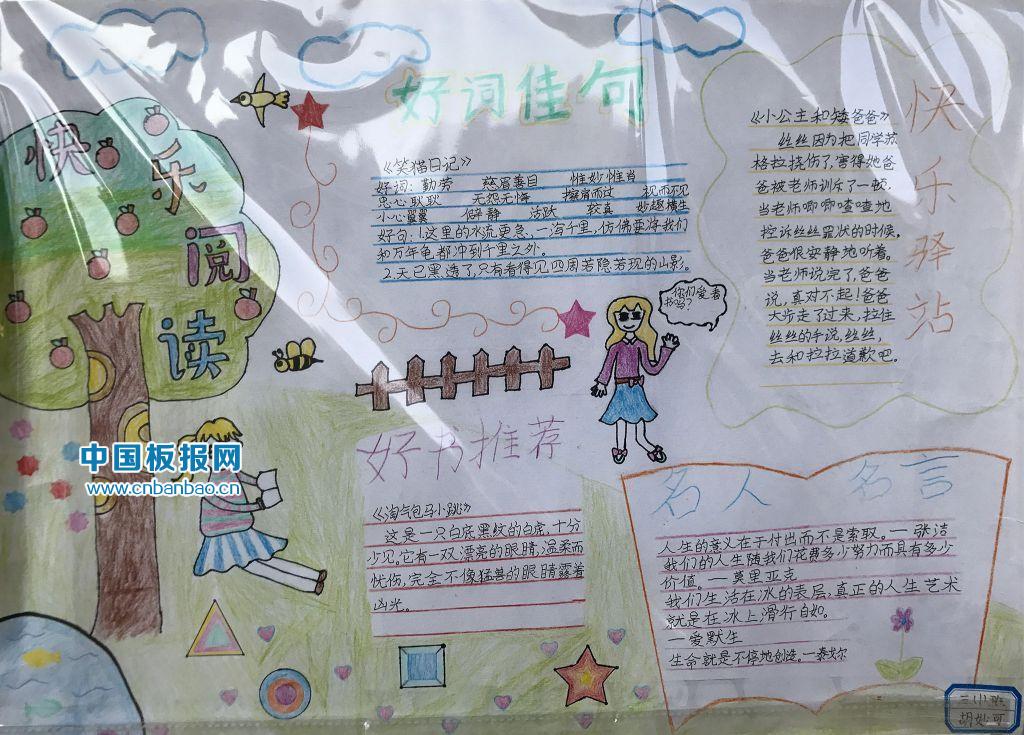 快乐阅读
好词佳句
《笑猫日记》
好词：勤劳 慈眉善目 惟妙惟肖
忠心耿耿 无怨无悔 擦肩而过 视而不见
小心翼翼 僻静 活跃 较真 妙趣横生
好句：1.这里的水流更急、一泻千里，仿佛要将我们
和万年龟都冲到千里之外。
2.天已黑透了，只有看得见四周若隐若现的山影。
你们爱看
书吗？
快乐驿站
《小公主和矮爸爸》
丝丝因为把同学苏
格拉挠伤了，害得她爸
爸被老师训斥了一顿，
当老师唧唧喳喳地
控诉丝丝罪状的时候，
爸爸很安静地听着。
当老师说完了，爸爸
说，真对不起！爸爸
大步走了过来，拉住
丝丝的手说，丝丝，
去和拉拉道歉吧。
好书推荐
《淘气包马小跳》
这是一只白底黑纹的白虎，十分
少见。它有一双漂亮的眼睛，温柔而
忧伤，完全不像猛兽的眼睛露着
凶光。
名人名言
人生的意义在于付出而不是索取。—张洁
我们的人生随我们花费多少努力而具有多少
价值。—莫里亚克
我们生活在冰的表层，真正的人生艺术
就是在冰上滑行自如。
—爱默生
生命就是不停地创造。—泰戈尔
中国板报网
www.cnbanbao.cn
胡妙可